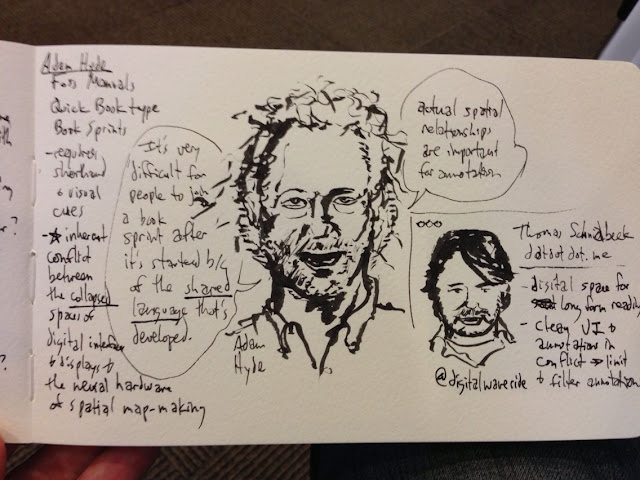 Adam Hyde
Foss Manuals
Quick Book type
Book Sprints
- requires
shorthand
& visual
cues
- ★ inherent
conflict
between
the collapsed
spaces of
digital
& displays &
the neural hardware
of spatial map-making
It's very
difficult for
people to join
a book
sprint after
it's started b/c
of the shared
language that's
developed.
Adam
Hyde
actual spatial
relationships
are important
for annotation
Thomas
dotdotdot.me
- digital space for
long form reading
- clean UI &
annotation in
conflict → limit
& filter annotation
@digitalwaveride
?
?